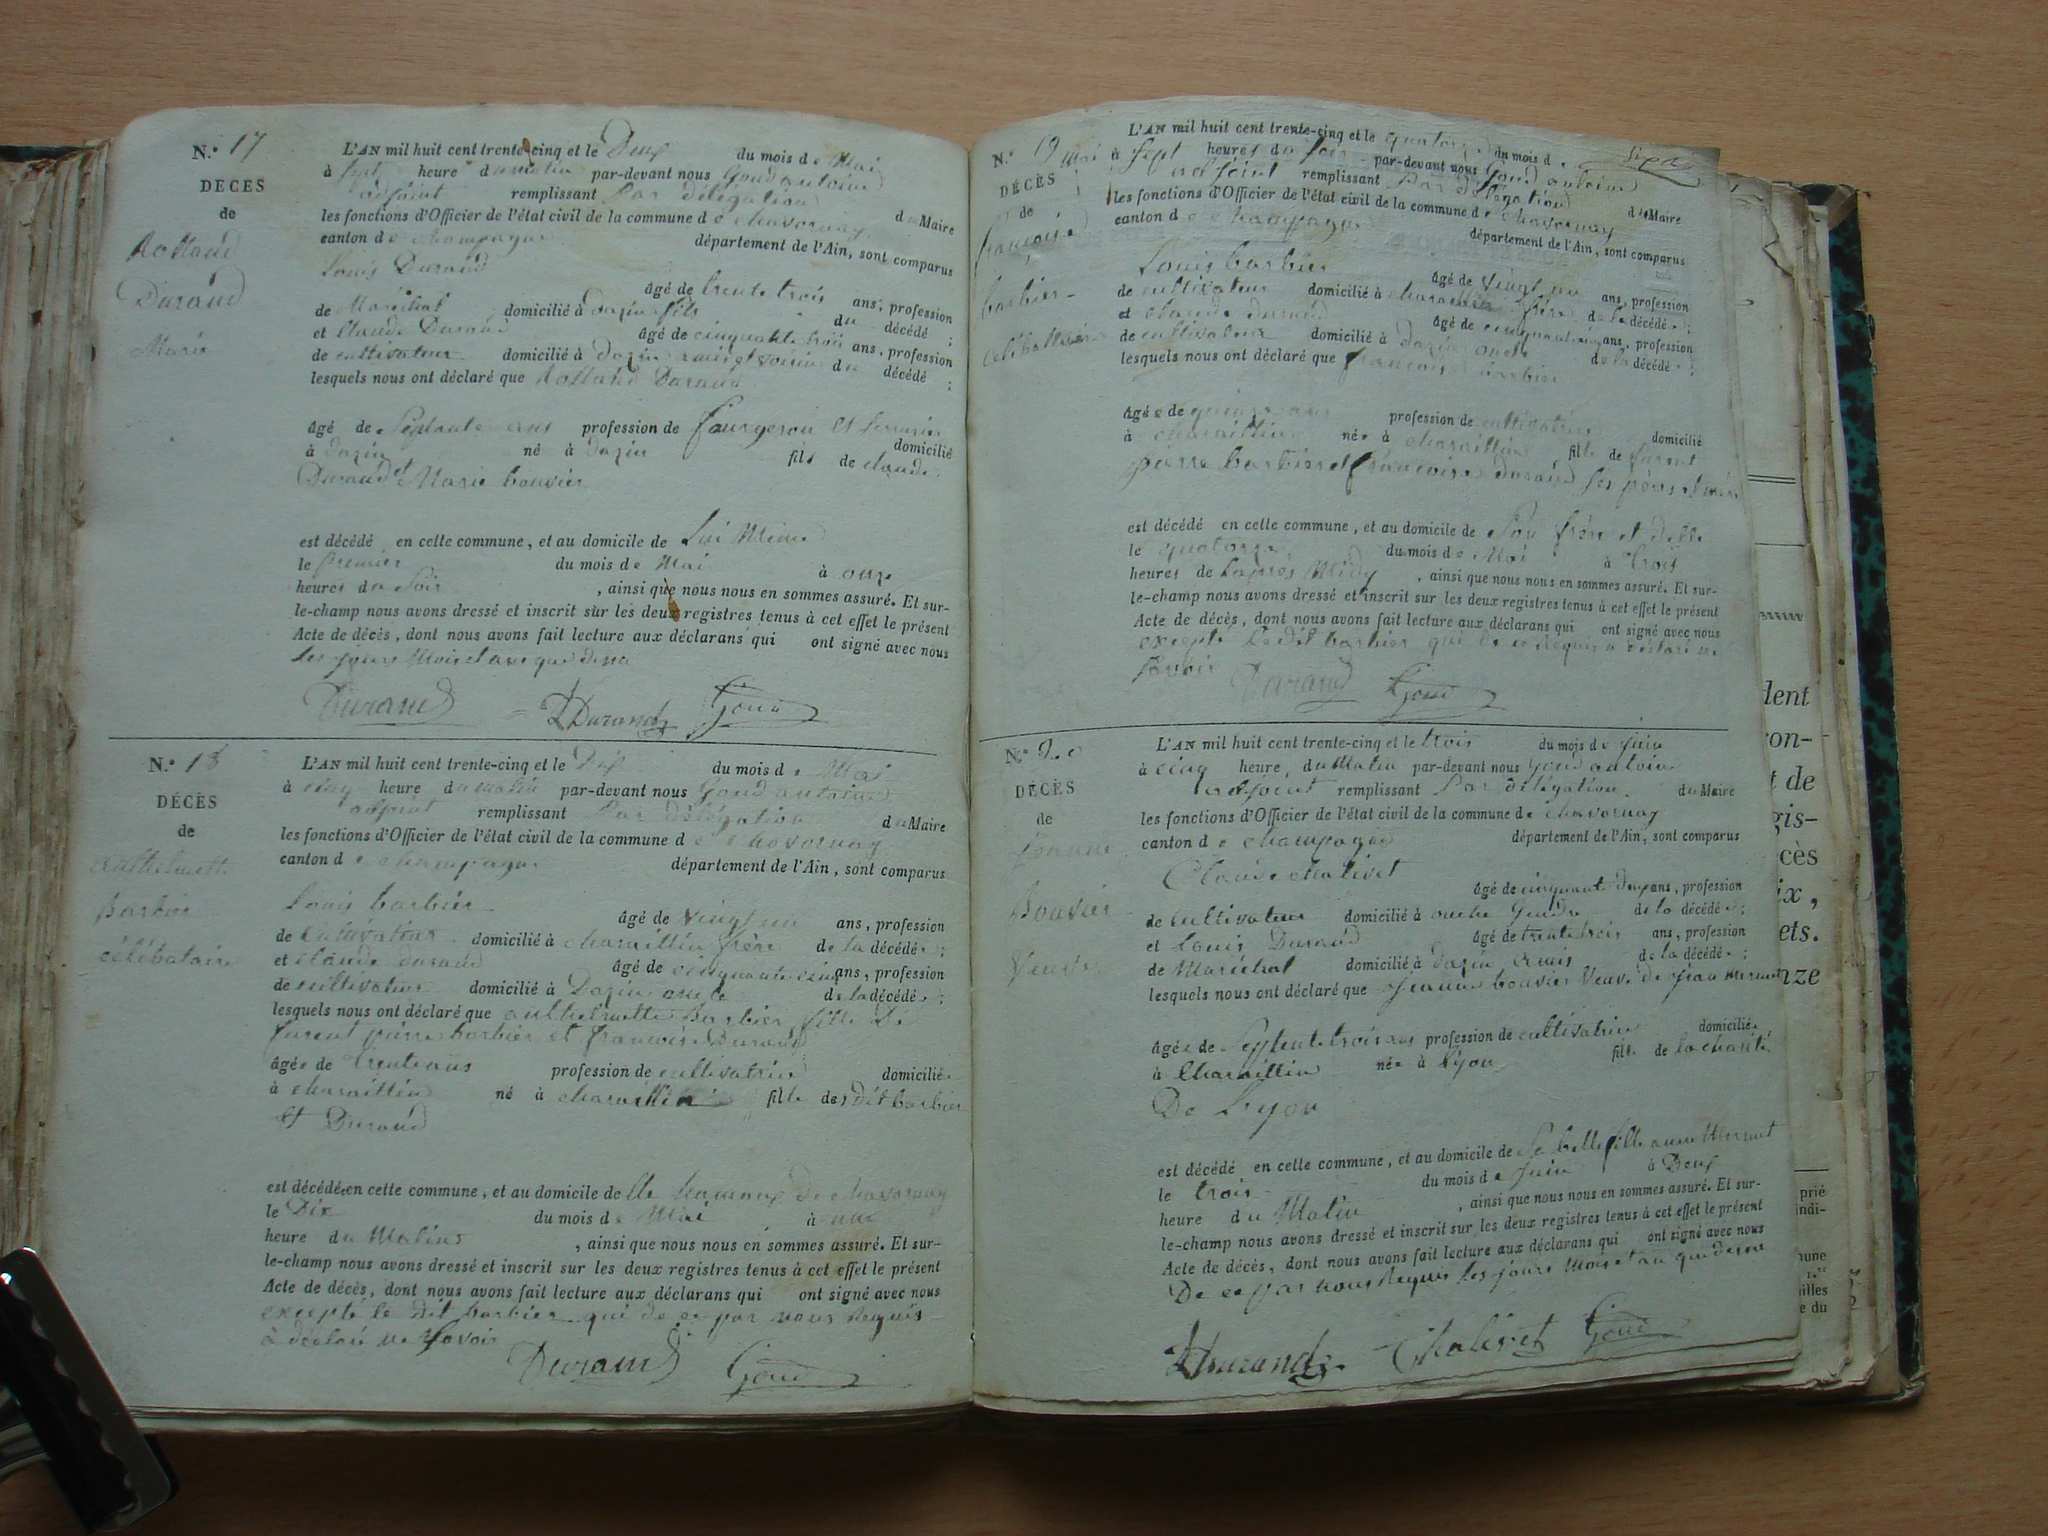 N.o 17
DÉCÈS
de
Rolland
Durand
Marié
L'AN mil huit cent trente-cinq et le Deux du mois de Mai
à sept heure du matin par-devant nous Goud antoine
adjoint remplissant Par délégation du Maire
les fonctions d'Officier de l'état civil de la commune de chavornay
canton de champagne département de l'Ain, sont comparus
Louis Durand
âgé de trente trois ans, profession
de Maréchal domicilié à dazin fils du décédé ;
et Claude Durand âgé de cinquante trois ans, profession
de cultivateur domicilié à dazin amis et voisin du décédé ;
lesquels nous ont déclaré que Rolland Durand
âgé de Septante ans profession de fourgeron et serrurier
domicilié
à dazin né à dazin fils de claude
Durand et Marie bouvier
est décédé en cette commune, et au domicile de Lui Même
le premier du mois de Mai à onze
heures du Soir , ainsi que nous nous en sommes assuré. Et sur-
le-champ nous avons dressé et inscrit sur les deux registres tenus à cet effet le présent
Acte de décès, dont nous avons fait lecture aux déclarans qui ont signé avec nous
les jours Mois et an que dessu
Durand LDurand Goud
N.o 18
DÉCÈS
de
anthelmette
Barbier
célébataire
L'AN mil huit cent trente-cinq et le Dix du mois de Mai
à cinq heure du matin par-devant nous Goud antoine
adjoint remplissant Par délégation du Maire
les fonctions d'Officier de l'état civil de la commune de chavornay
canton de champagne département de l'Ain, sont comparus
Louis barbier
âgé de vingt un ans, profession
de cultivateur domicilié à charaillin frère de la décédée ;
et claude durand âgé de cinquante cinq ans, profession
de cultivateur domicilié à Dazin oncle de la décédée ;
lesquels nous ont déclaré que anthelmette Barbier fille De
furent pierre barbier et françoise Durand
âgée de trente ans profession de cultivatrice domiciliée
à charaillin né à charaillin fille des dit barbier
et Durand
est décédée en cette commune, et au domicile de Elle hameaux De chavornay
le Dix du mois de Mai à une
heure du Matins , ainsi que nous nous en sommes assuré. Et sur-
le-champ nous avons dressé et inscrit sur les deux registres tenus à cet effet le présent
Acte de décès, dont nous avons fait lecture aux déclarans qui ont signé avec nous
excepté le dit barbier qui de ce par nous requis
à déclaré ne savoir
Durand Goud
N.o 19
DÉCÈS
de
françoise
barbier
célibattaire
L'AN mil huit cent trente-cinq et le quatorze du mois de
mai à sept heures du soir par-devant nous Goud antoine
adjoint remplissant Par délégation du Maire
les fonctions d'Officier de l'état civil de la commune de chavornay
canton de champagne département de l'Ain, sont comparus
Louis barbier
âgé de vingt un ans, profession
de cultivateur domicilié à charaillin frère de la décédée ;
et claude durand âgé de cinquante cinq ans, profession
de cultivateur domicilié à dazin oncle de la décédée ;
lesquels nous ont déclaré que françoise barbier
âgée de quinze ans profession de cultivatrice domicilié
à charaillin née à charaillin fille de furent
pierre barbier et françoise durand ses père et mère
est décédé en cette commune, et au domicile de Son frère et delle
le quatorze du mois de Mai à trois
heures de Lapres Midy , ainsi que nous nous en sommes assuré. Et sur-
le-champ nous avons dressé et inscrit sur les deux registres tenus à cet effet le présent
Acte de décès, dont nous avons fait lecture aux déclarans qui ont signé avec nous
excepté Ledit barbier qui de ce requis a déclaré ne
savoir
Durand Goud
N.o 20
DÉCÈS
de
jeanne
Bouvier
Veuve
L'AN mil huit cent trente-cinq et le trois du mois de juin
à cinq heure du Matin par-devant nous Goud antoine
adjoint remplissant Par délégation du Maire
les fonctions d'Officier de l'état civil de la commune de chavornay
canton de champagne département de l'Ain, sont comparus
Claude chalivet
âgé de cinquante deux ans, profession
de cultivateur domicilié à ouche Gendre de la décédée ;
et Louis Durand âgé de trente trois ans, profession
de Maréchal domicilié à dazin amis de la décédée ;
lesquels nous ont déclaré que jeanne bouvier Veuve de jean mermet
âgée de Septente trois ans profession de cultivatrice domiciliée
à Charaillin née à Lyon fille de la charité
De Lyon
est décédé en cette commune, et au domicile de Sa belle fille anne Mermet
le trois du mois de Juin à Deux
heure du Matin , ainsi que nous nous en sommes assuré. Et sur-
le-champ nous avons dressé et inscrit sur les deux registres tenus à cet effet le présent
Acte de décès, dont nous avons fait lecture aux déclarans qui ont signé avec nous
De ce par nous Requis les jours Mois et an que dessu
LDurand Chalivet Goud
dent
on-
t de
gis-
cès
ix,
ets.
nze
prié
indi-
mune
illes
e du